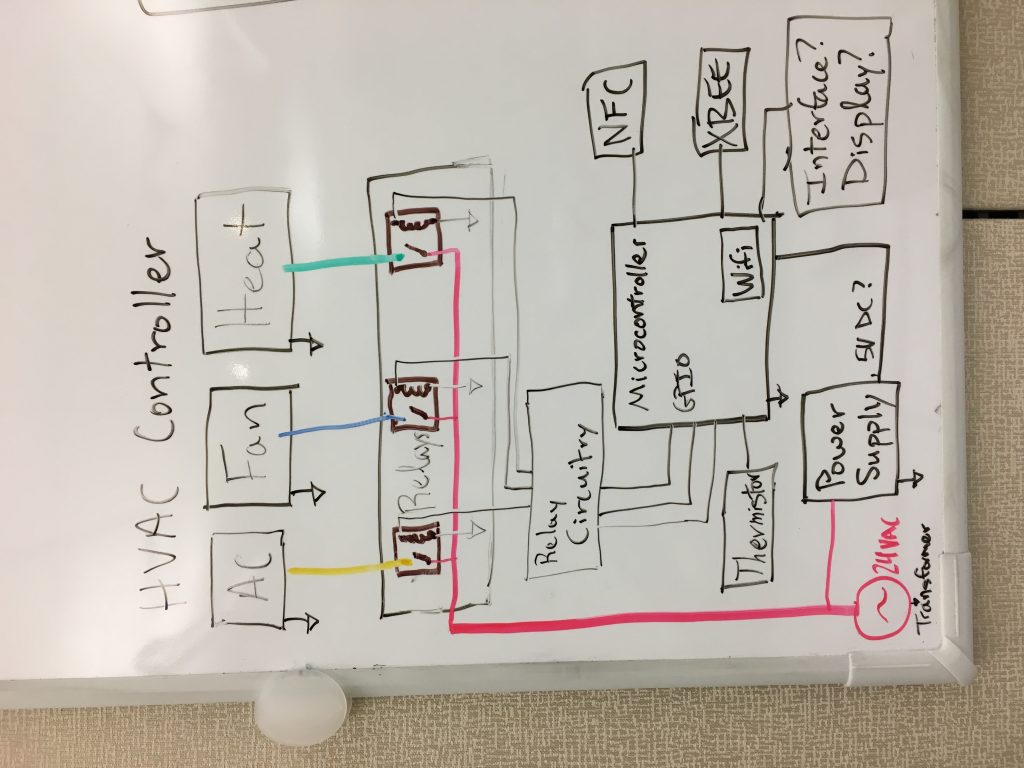 HVAC Controller
AC
Fan
Heat
Relays
Relay
Circuitry
Microcontroller
GPIO
Wifi
NFC
XBEE
Thermistor
Interface?
Display?
Power
Supply
5V DC?
~
24VAC
Transformer